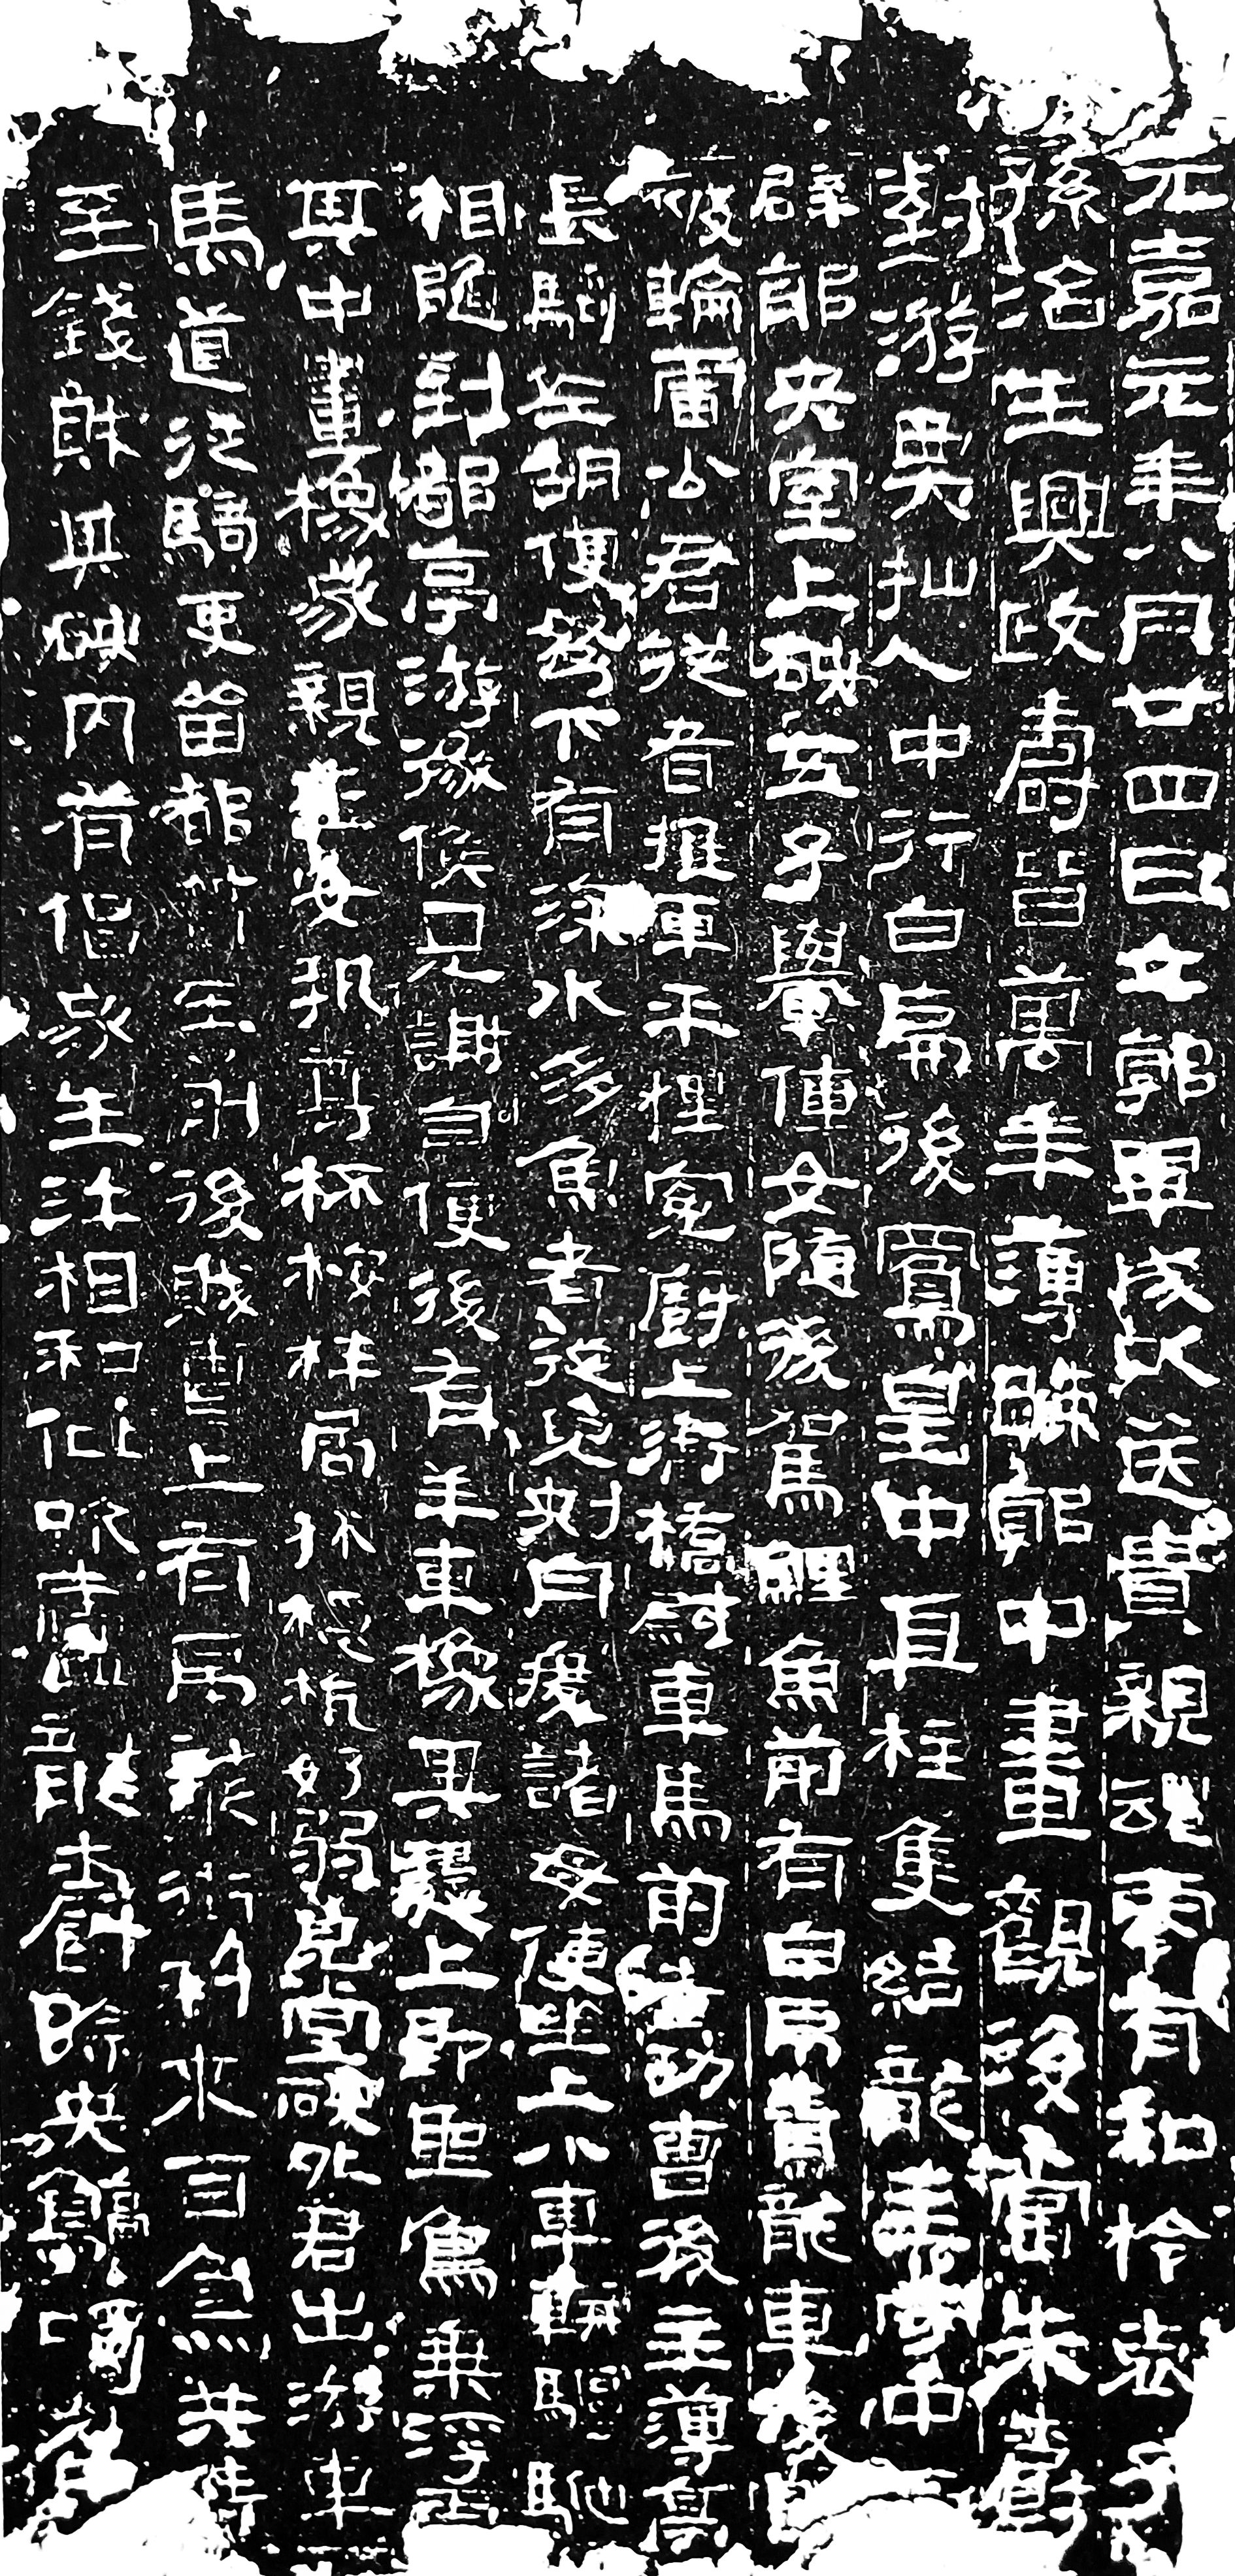 元嘉元年八月廿四日立郭畢成以送貴親魂零有知柃哀子
孫治生興政壽皆萬年薄踈郭中畫觀後當朱爵
對游仙人中行白虎後鳳皇中直柱隻結龍主守中霤
辟邪央室上硤五子轝僮女隨後駕鯉魚前有白虎青龍車後即
被輪雷公君從者推車平理冤廚上衛橋尉車馬前者功曹後主簿亭
長騎佐胡使弩下有深水多魚者從兒刺舟渡諸母使坐上小車軿驅馳
相隨到都亭游徼候見謝自便後有羊車橡其槥上即聖鳥乘浮雲
其中畫橡家親玉女執尊杯桉柈局秫穩杭好弱皃堂硤外君出游車
馬道從騎吏留都督在前後賊曹上有虎龍銜利來百鳥共侍
至錢財其硤內有倡家生汙相和仳吹廬龍爵除央鶴噣